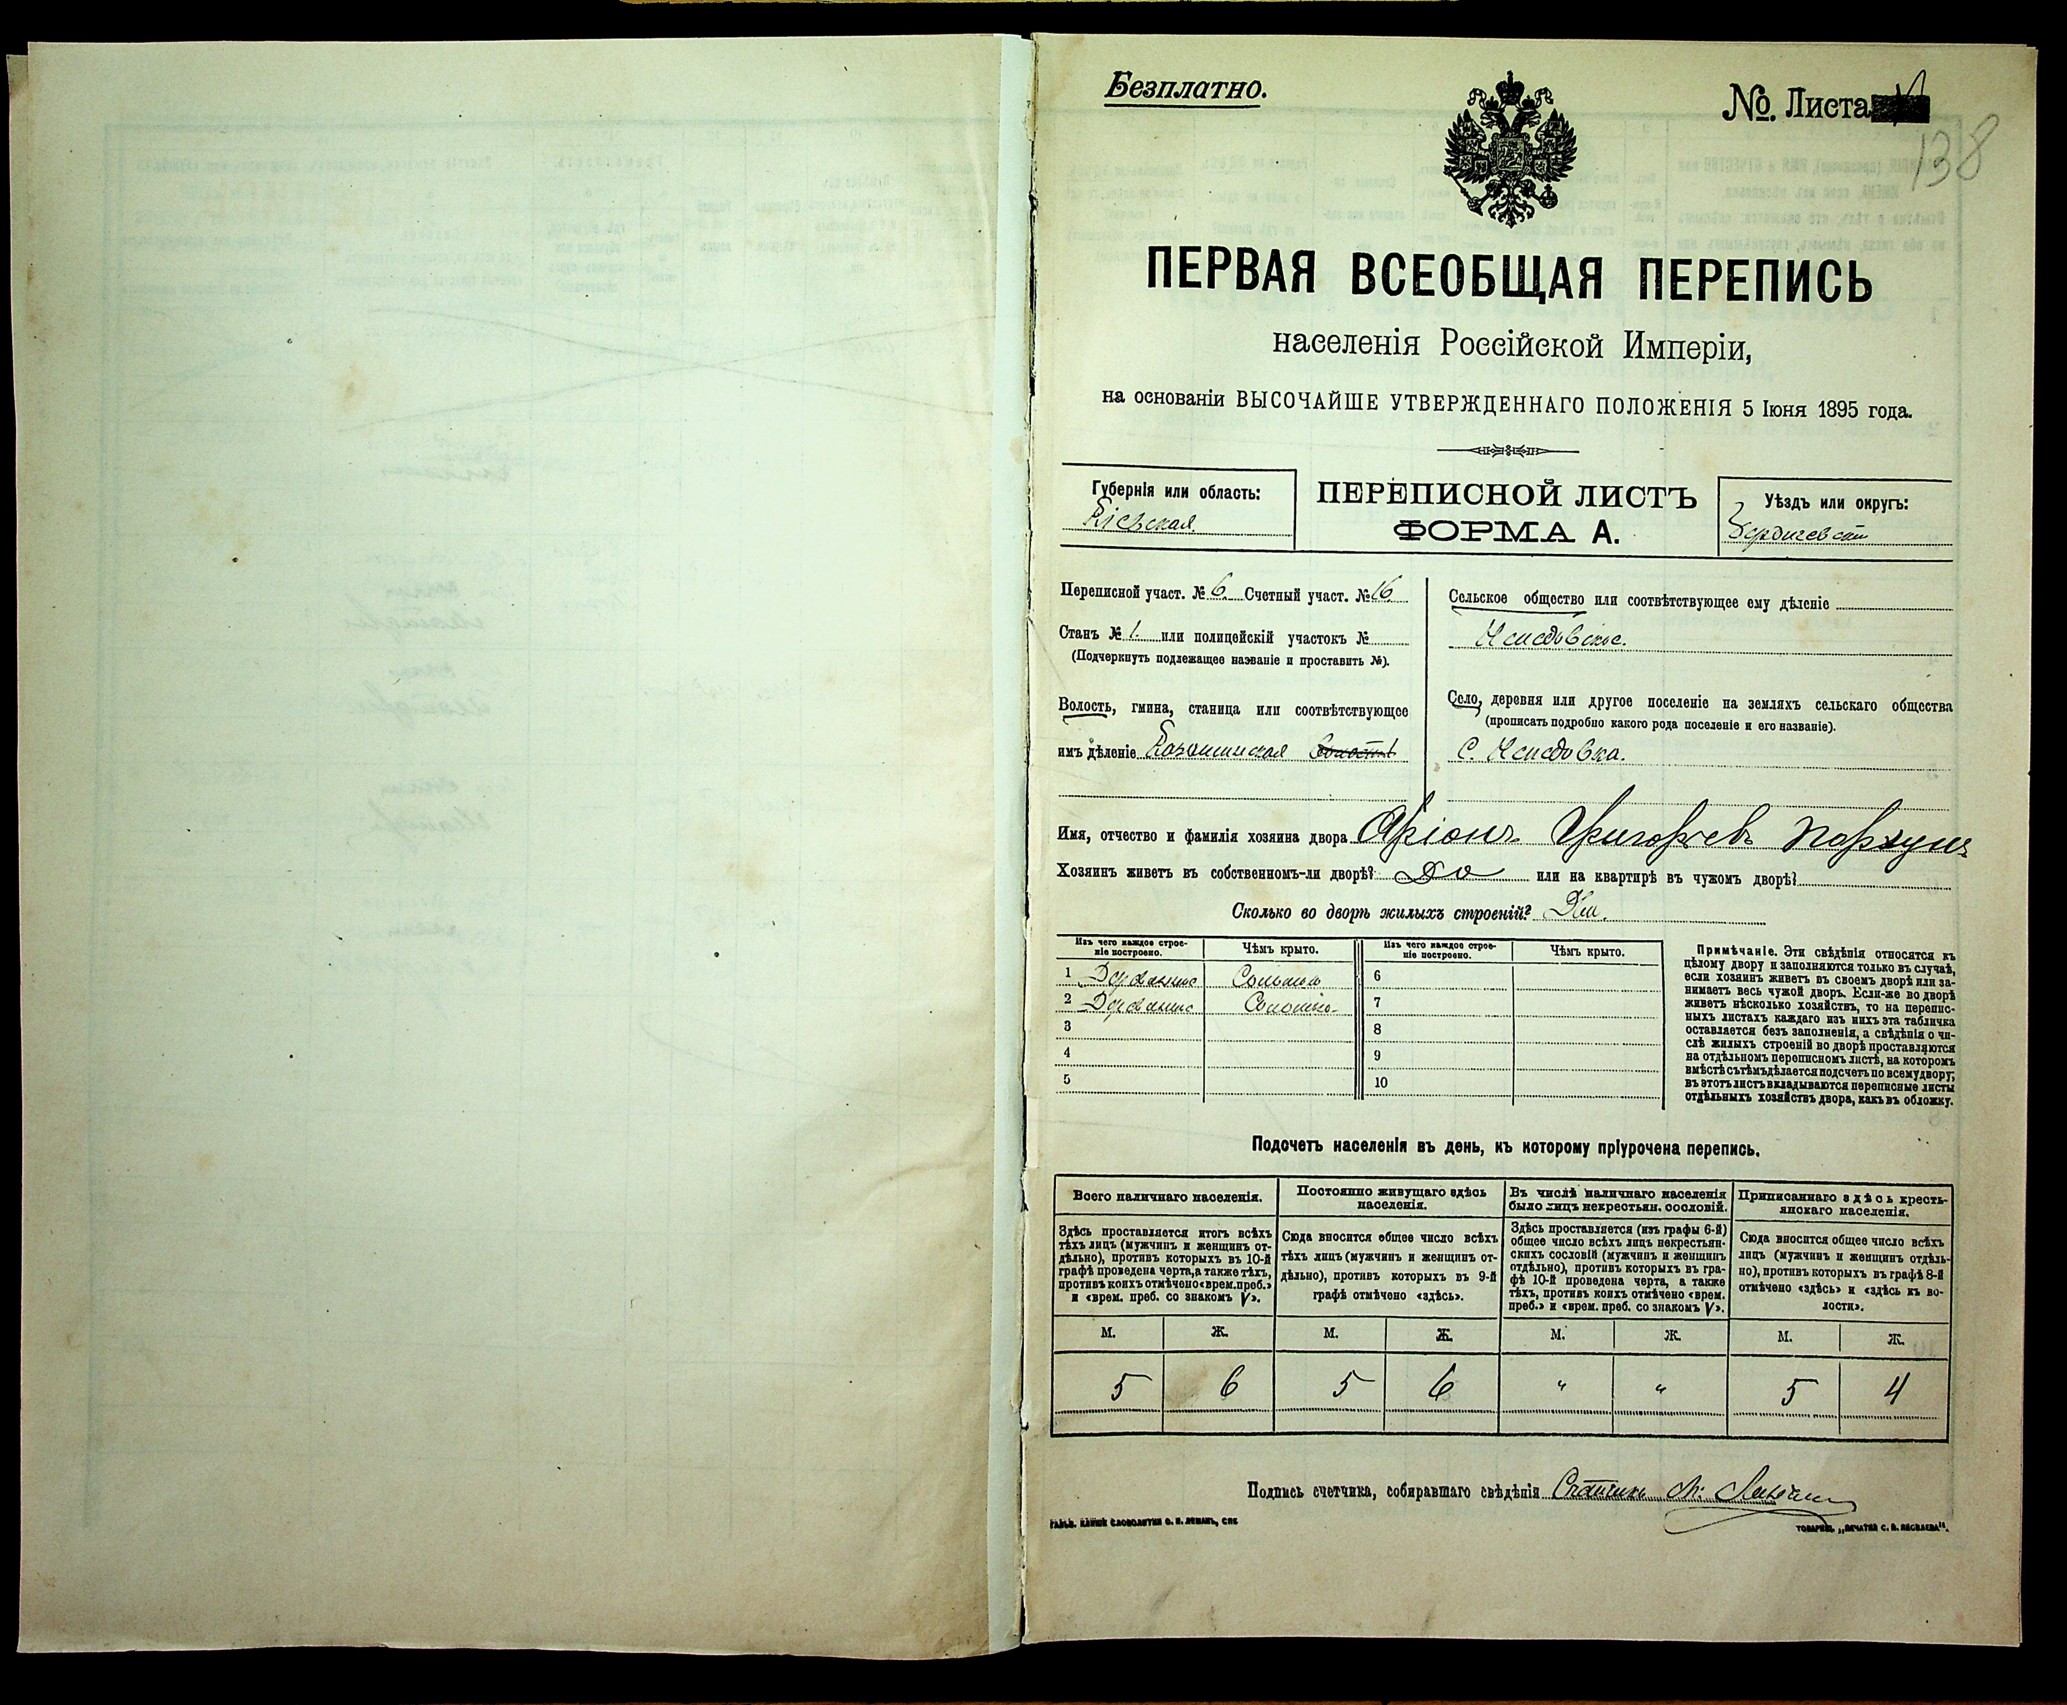 Безплатно.
№. Листа
138
ПЕРВАЯ ВСЕОБЩАЯ ПЕРЕПИСЬ
населенія Россійской Имперіи,
на основаніи ВЫСОЧАЙШЕ УТВЕРЖДЕННАГО ПОЛОЖЕНІЯ 5 Іюня 1895 года.
Губернія или область:
Кіевская.
ПЕРЕПИСНОЙ ЛИСТЪ
ФОРМА А.
Уѣздъ или округъ:
Бердичевскій
Переписной участ. № 6. Счетный участ. № 16
Станъ № 1. или полицейскій участокъ №
(Подчеркнуть подлежащее названіе и проставить №).
Волость, гмина, станица или соотвѣтствующее
имъ дѣленіе
Сельское общество или соотвѣтствующее ему дѣленіе
Село, деревня или другое поселеніе на земляхъ сельскаго общества
(прописать подробно какого рода поселеніе и его названіе).
С.
Имя, отчество и фамилія хозяина двора Григорьев
Хозяинъ живетъ въ собственномъ-ли дворѣ? Да или на квартирѣ въ чужомъ дворѣ?
Сколько во дворѣ жилыхъ строеній? Два.
Изъ чего каждое строе-
ніе построено.
Чѣмъ крыто.
Изъ чего каждое строе-
ніе построено.
Чѣмъ крыто.
1 Соломою 6
2 Соломою 7
3 8
4 9
5 10
Примѣчаніе. Эти свѣдѣнія относятся къ
цѣлому двору и заполняются только въ случаѣ,
если хозяинъ живетъ въ своемъ дворѣ или за-
нимаетъ весь чужой дворъ. Если-же во дворѣ
живетъ нѣсколько хозяйствъ, то на перепис-
ныхъ листахъ каждаго изъ нихъ эта табличка
оставляется безъ заполненія, а свѣдѣнія о чи-
слѣ жилыхъ строеній во дворѣ проставляются
на отдѣльномъ переписномъ листѣ, на которомъ
вмѣстѣ съ тѣмъ дѣлается подсчетъ по всему двору;
въ этотъ листъ вкладываются переписные листы
отдѣльныхъ хозяйствъ двора, какъ въ обложку.
Подсчетъ населенія въ день, къ которому пріурочена перепись.
Всего наличнаго населенія.
Здѣсь проставляется итогъ всѣхъ
тѣхъ лицъ (мужчинъ и женщинъ от-
дѣльно), противъ которыхъ въ 10-й
графѣ проведена черта, а также тѣхъ,
противъ коихъ отмѣчено «врем. преб.»
и «врем. преб. со знакомъ V».
Постоянно живущаго здѣсь
населенія.
Сюда вносится общее число всѣхъ
тѣхъ лицъ (мужчинъ и женщинъ от-
дѣльно), противъ которыхъ въ 9-й
графѣ отмѣчено «здѣсь».
Въ числѣ наличнаго населенія
было лицъ некрестьян. сословій.
Здѣсь проставляется (изъ графы 6-й)
общее число всѣхъ лицъ некрестьян-
скихъ сословій (мужчинъ и женщинъ
отдѣльно), противъ которыхъ въ гра-
фѣ 10-й проведена черта, а также
тѣхъ, противъ коихъ отмѣчено «врем.
преб.» и «врем. преб. со знакомъ V».
Приписаннаго здѣсь кресть-
янскаго населенія.
Сюда вносится общее число всѣхъ
лицъ (мужчинъ и женщинъ отдѣль-
но), противъ которыхъ въ графѣ 8-й
отмѣчено «здѣсь» и «здѣсь къ во-
лости».
М. Ж. М. Ж. М. Ж. М. Ж.
5 6 5 6 " " 5 4
Подпись счетчика, собиравшаго свѣдѣнія